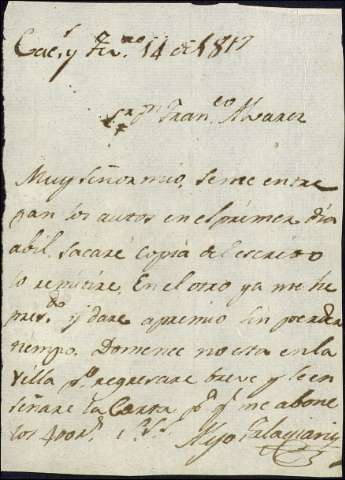 14 de 1817
Sr. Dn. Franco. Alvarez
Muy señor mio, se me entre
gan los autos en el primer dia
abil, sacaré copia del escrito
lo remitire. En el otro ya me he
presdo. y dare apremio sin perder
tiempo. Domenec no esta en la
Villa po. regresara breve y le en
señare la Carta pa. q. me abone
los 400 rs.
Alejo